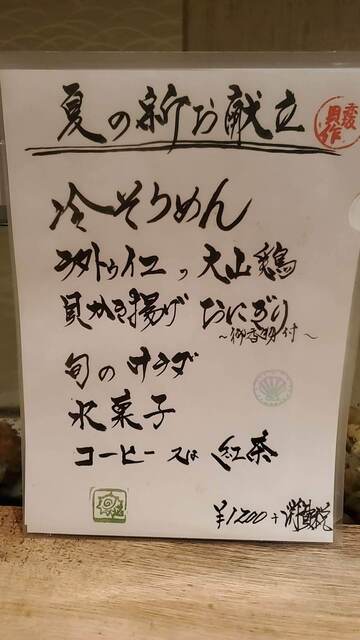 夏の新お献立
冷そうめん
ラタトゥイユ、大山鶏
貝かき揚げ おにぎり
～御香物付～
旬のサラダ
水菓子
コーヒー 又は 紅茶
¥1200+消費税